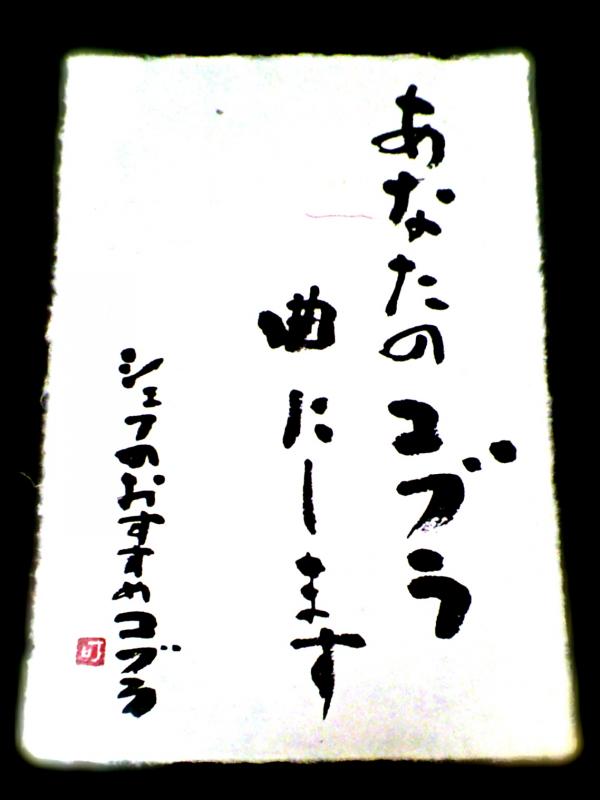 あなたのコブラ
曲にします
シェフのおすすめコブラ